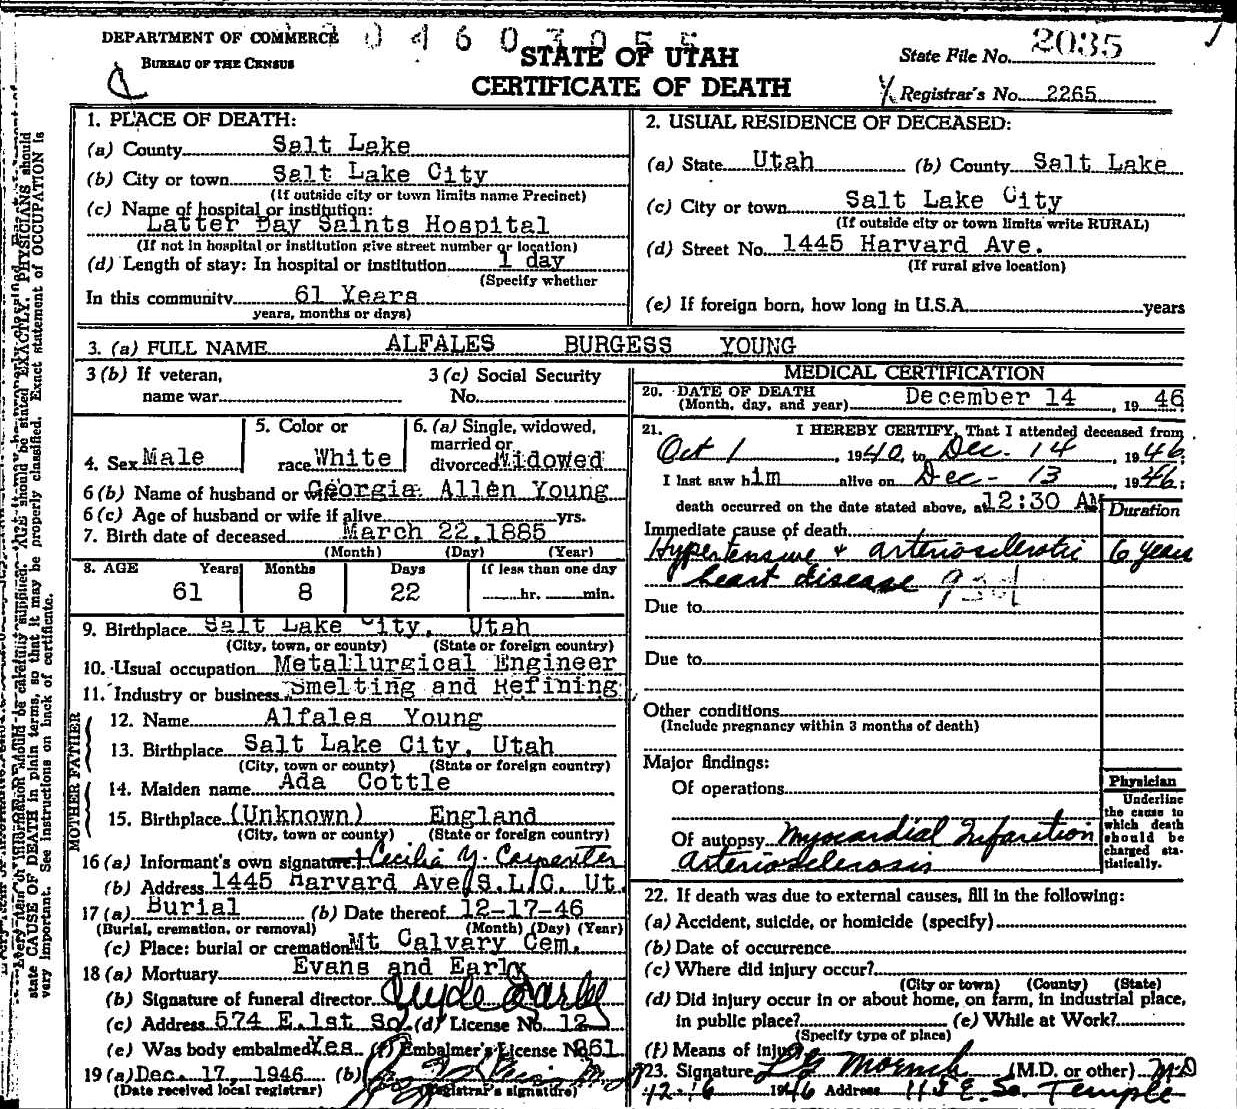 DEPARTMENT OF COMMERCE
BUREAU OF THE CENSUS
STATE OF UTAH
CERTIFICATE OF DEATH
State File No. 2035
Registrar's No. 2265
1. PLACE OF DEATH:
(a) County Salt Lake
(b) City or town Salt Lake City
(If outside city or town limits name Precinct)
(c) Name of hospital or institution:
Latter Day Saints Hospital
(If not in hospital or institution give street number or location)
(d) Length of stay: In hospital or institution 1 day
(Specify whether
In this community 61 Years
years, months or days)
2. USUAL RESIDENCE OF DECEASED:
(a) State Utah (b) County Salt Lake
(c) City or town Salt Lake City
(If outside city or town limits write RURAL)
(d) Street No. 1445 Harvard Ave.
(If rural give location)
(e) If foreign born, how long in U.S.A. years
3. (a) FULL NAME ALFALES BURGESS YOUNG
3 (b) If veteran,
name war
3 (c) Social Security
No.
4. Sex Male
5. Color or
race White
6. (a) Single, widowed,
married or
divorced Widowed
6 (b) Name of husband or wife Georgia Allen Young
6 (c) Age of husband or wife if alive yrs.
7. Birth date of deceased March 22, 1885
(Month) (Day) (Year)
8. AGE Years Months Days If less than one day
61 8 22 hr. min.
9. Birthplace Salt Lake City, Utah
(City, town, or county) (State or foreign country)
10. Usual occupation Metallurgical Engineer
11. Industry or business Smelting and Refining
FATHER
12. Name Alfales Young
13. Birthplace Salt Lake City, Utah
(City, town or county) (State or foreign country)
MOTHER
14. Maiden name Ada Cottle
15. Birthplace (Unknown) England
(City, town or county) (State or foreign country)
16 (a) Informant's own signature Cecilia Y. Carpenter
(b) Address 1445 Harvard Ave, S.L.C. Ut.
17 (a) Burial (b) Date thereof 12-17-46
(Burial, cremation, or removal) (Month) (Day) (Year)
(c) Place: burial or cremation Mt Calvary Cem.
18 (a) Mortuary Evans and Early
(b) Signature of funeral director Clyde Early
(c) Address 574 E. 1st So. (d) License No. 12
(e) Was body embalmed Yes (f) Embalmer's License No. 261
19 (a) Dec. 17, 1946 (b)
(Date received local registrar) (Registrar's signature)
MEDICAL CERTIFICATION
20. DATE OF DEATH
(Month, day, and year) December 14, 1946
21. I HEREBY CERTIFY, That I attended deceased from
Oct 1, 1940, to Dec. 14, 1946
I last saw him alive on Dec - 13 1946;
death occurred on the date stated above, at 12:30 AM
Duration
Immediate cause of death
Hypertensive + arteriosclerotic 6 years
heart disease
Due to
Due to
Other conditions
(Include pregnancy within 3 months of death)
Major findings:
Of operations
Of autopsy Myocardial Infarction
arteriosclerosis
Physician
Underline
the cause to
which death
should be
charged sta-
tistically.
22. If death was due to external causes, fill in the following:
(a) Accident, suicide, or homicide (specify)
(b) Date of occurrence
(c) Where did injury occur?
(City or town) (County) (State)
(d) Did injury occur in or about home, on farm, in industrial place,
in public place? (e) While at Work?
(Specify type of place)
(f) Means of injury
23. Signature (M.D. or other) MD
12-16 1946 Address 115 E. So. Temple
state CAUSE OF DEATH in plain terms, so that it may be properly classified. Exact statement of OCCUPATION is
very important. See instructions on back of certificate.